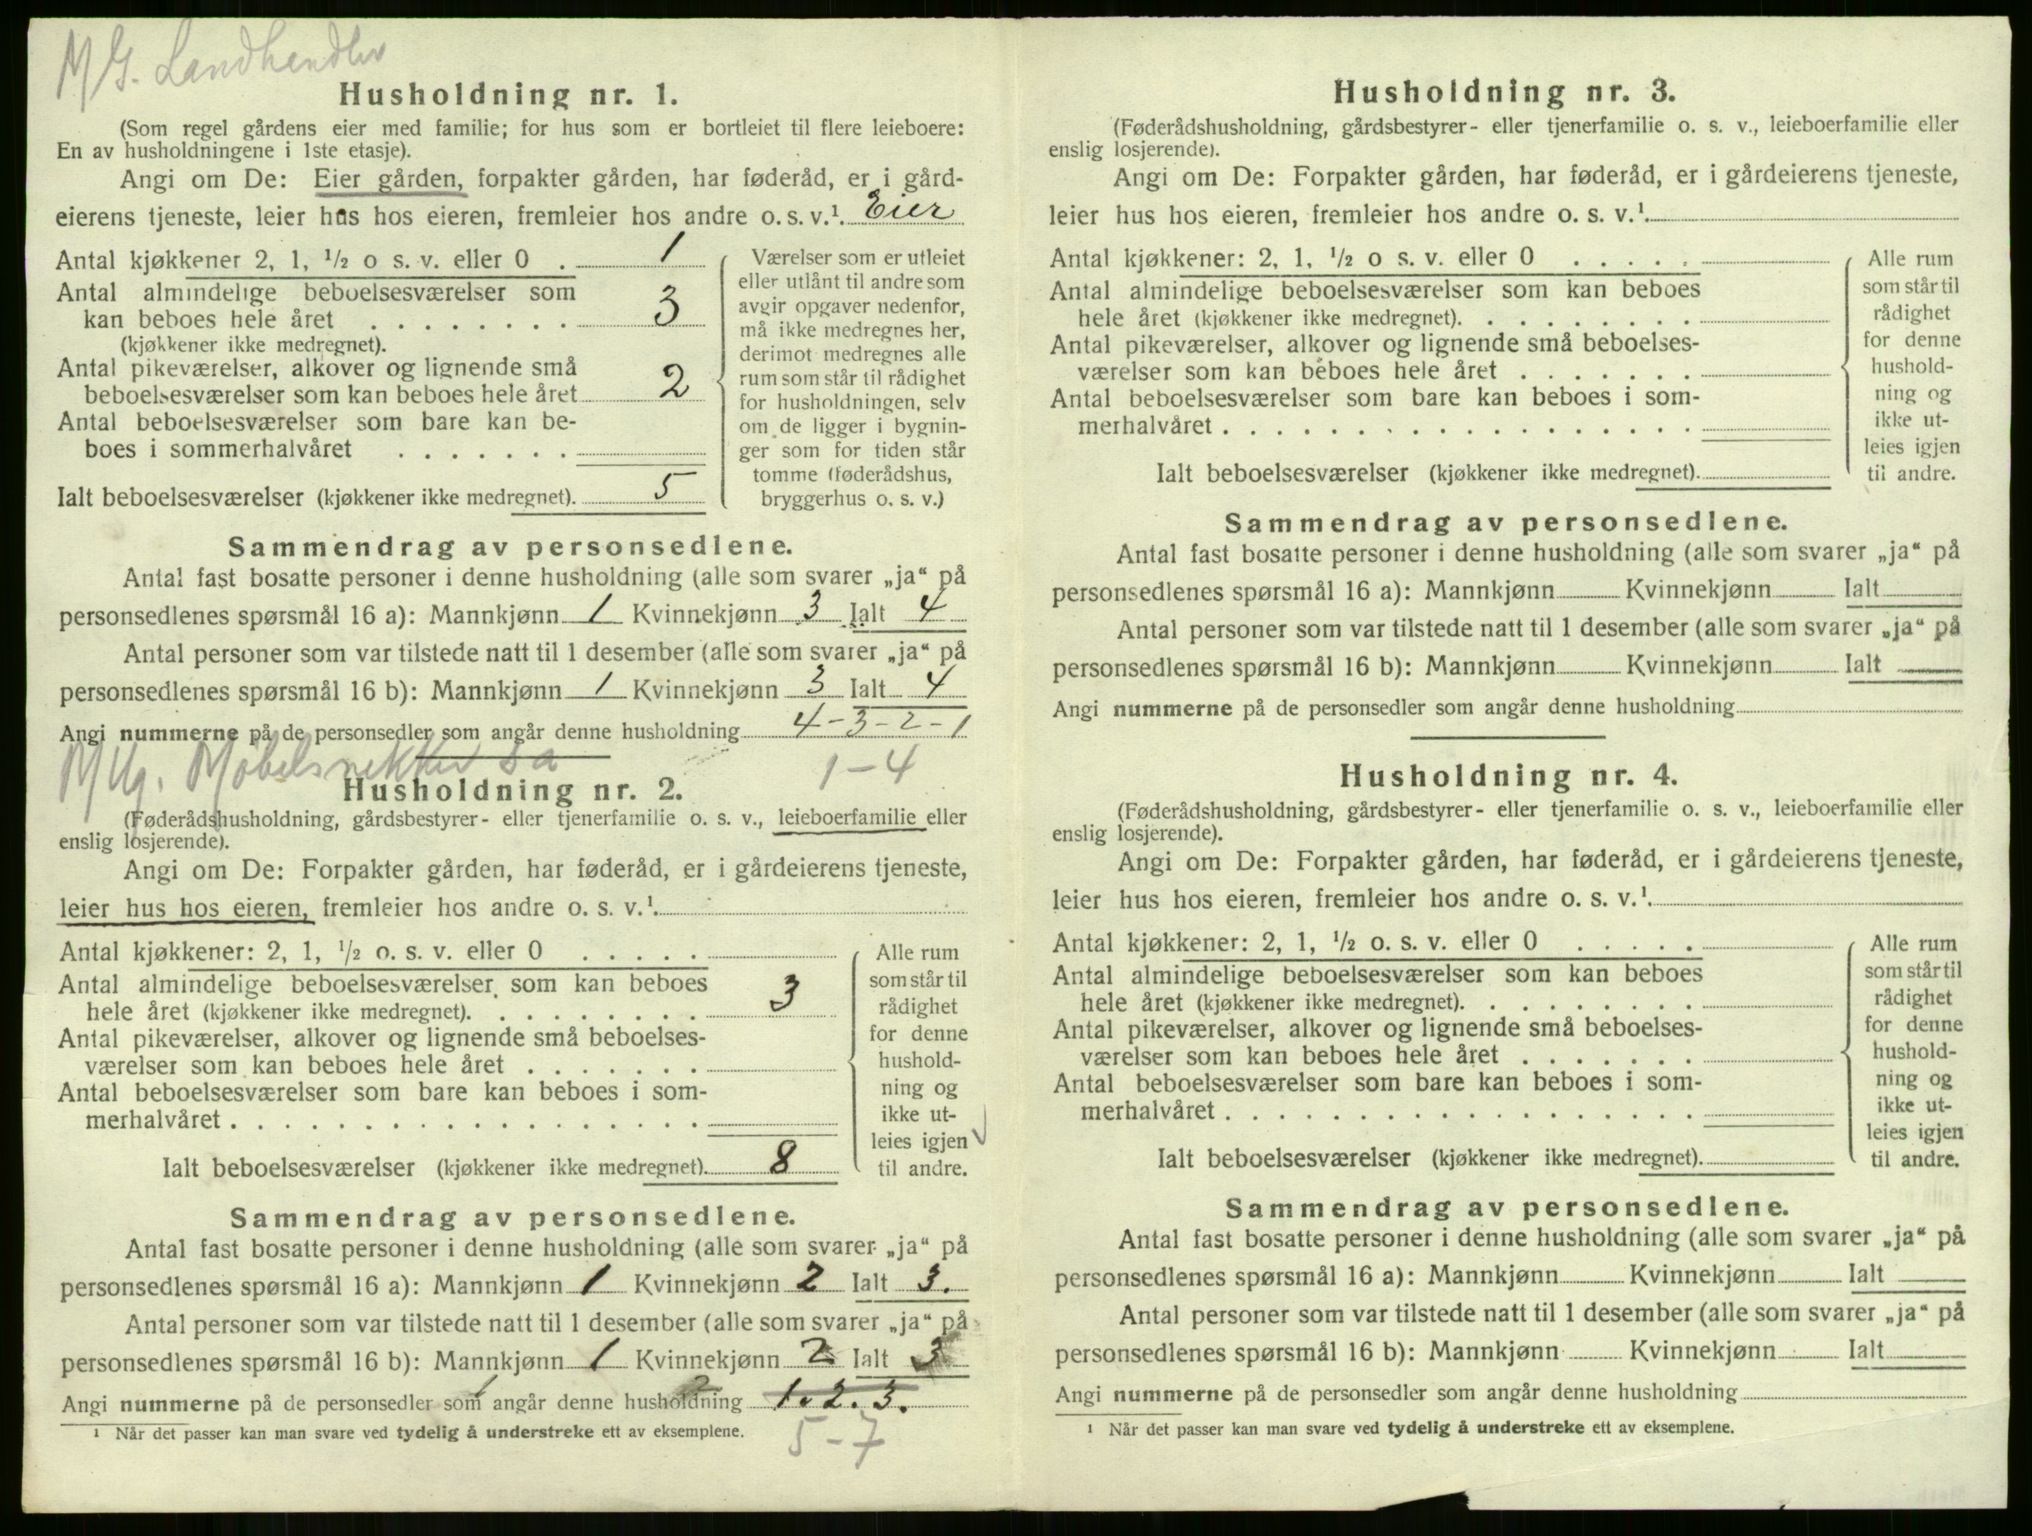 M G. Landhandler
Husholdning nr. 1.
(Som regel gårdens eier med familie; for hus som er bortleiet til flere leieboere:
En av husholdningene i 1ste etasje).
Angi om De: Eier gården, forpakter gården, har føderåd, er i gård-
eierens tjeneste, leier hus hos eieren, fremleier hos andre o. s. v.¹. Eier
Antal kjøkkener 2, 1, ½ o s. v. eller 0 . 1
Antal almindelige beboelsesværelser som
kan beboes hele året . . . . . . . . 3
(kjøkkener ikke medregnet).
Antal pikeværelser, alkover og lignende små
beboelsesværelser som kan beboes hele året 2
Antal beboelsesværelser som bare kan be-
boes i sommerhalvåret . . . . . . .
Ialt beboelsesværelser (kjøkkener ikke medregnet). 5
Værelser som er utleiet
eller utlånt til andre som
avgir opgaver nedenfor,
må ikke medregnes her,
derimot medregnes alle
rum som står til rådighet
for husholdningen, selv
om de ligger i bygnin-
ger som for tiden står
tomme (føderådshus,
bryggerhus o. s. v.)
Sammendrag av personsedlene.
Antal fast bosatte personer i denne husholdning (alle som svarer „ja“ på
personsedlenes spørsmål 16 a): Mannkjønn 1 Kvinnekjønn 3 Ialt 4
Antal personer som var tilstede natt til 1 desember (alle som svarer „ja“ på
personsedlenes spørsmål 16 b): Mannkjønn 1 Kvinnekjønn 3 Ialt 4
Angi nummerne på de personsedler som angår denne husholdning 4-3-2-1
M Ug. Møbelsnekker s a 1-4
Husholdning nr. 2.
(Føderådshusholdning, gårdsbestyrer- eller tjenerfamilie o. s. v., leieboerfamilie eller
enslig losjerende).
Angi om De: Forpakter gården, har føderåd, er i gårdeierens tjeneste,
leier hus hos eieren, fremleier hos andre o. s. v.¹.
Antal kjøkkener: 2, 1, ½ o. s. v. eller 0 . . . . .
Antal almindelige beboelsesværelser som kan beboes
hele året (kjøkkener ikke medregnet). . . . . . . . . 3
Antal pikeværelser, alkover og lignende små beboelses-
værelser som kan beboes hele året . . . . . . .
Antal beboelsesværelser som bare kan beboes i som-
merhalvåret . . . . . . . . . . . . . . . . . .
Ialt beboelsesværelser (kjøkkener ikke medregnet). 8
Alle rum
som står til
rådighet
for denne
hushold-
ning og
ikke ut-
leies igjen
til andre.
Sammendrag av personsedlene.
Antal fast bosatte personer i denne husholdning (alle som svarer „ja“ på
personsedlenes spørsmål 16 a): Mannkjønn 1 Kvinnekjønn 2 Ialt 3.
Antal personer som var tilstede natt til 1 desember (alle som svarer „ja“ på
personsedlenes spørsmål 16 b): Mannkjønn 1 Kvinnekjønn 2 Ialt 3
Angi nummerne på de personsedler som angår denne husholdning 1. 2. 3.
¹ Når det passer kan man svare ved tydelig å understreke ett av eksemplene.
5-7
Husholdning nr. 3.
(Føderådshusholdning, gårdsbestyrer- eller tjenerfamilie o. s. v., leieboerfamilie eller
enslig losjerende).
Angi om De: Forpakter gården, har føderåd, er i gårdeierens tjeneste,
leier hus hos eieren, fremleier hos andre o. s. v.¹.
Antal kjøkkener: 2, 1, ½ o s. v. eller 0 . . . . .
Antal almindelige beboelsesværelser som kan beboes
hele året (kjøkkener ikke medregnet). . . . . . . . .
Antal pikeværelser, alkover og lignende små beboelses-
værelser som kan beboes hele året . . . . . . .
Antal beboelsesværelser som bare kan beboes i som-
merhalvåret . . . . . . . . . . . . . . . . . .
Ialt beboelsesværelser (kjøkkener ikke medregnet).
Alle rum
som står til
rådighet
for denne
hushold-
ning og
ikke ut-
leies igjen
til andre.
Sammendrag av personsedlene.
Antal fast bosatte personer i denne husholdning (alle som svarer „ja“ på
personsedlenes spørsmål 16 a): Mannkjønn Kvinnekjønn Ialt
Antal personer som var tilstede natt til 1 desember (alle som svarer „ja“ på
personsedlenes spørsmål 16 b): Mannkjønn Kvinnekjønn Ialt
Angi nummerne på de personsedler som angår denne husholdning
Husholdning nr. 4.
(Føderådshusholdning, gårdsbestyrer- eller tjenerfamilie o. s. v., leieboerfamilie eller
enslig losjerende).
Angi om De: Forpakter gården, har føderåd, er i gårdeierens tjeneste,
leier hus hos eieren, fremleier hos andre o. s. v.¹.
Antal kjøkkener: 2, 1, ½ o. s. v. eller 0 . . . . .
Antal almindelige beboelsesværelser som kan beboes
hele året (kjøkkener ikke medregnet). . . . . . . . .
Antal pikeværelser, alkover og lignende små beboelses-
værelser som kan beboes hele året . . . . . . .
Antal beboelsesværelser som bare kan beboes i som-
merhalvåret . . . . . . . . . . . . . . . . . .
Ialt beboelsesværelser (kjøkkener ikke medregnet).
Alle rum
som står til
rådighet
for denne
hushold-
ning og
ikke ut-
leies igjen
til andre.
Sammendrag av personsedlene.
Antal fast bosatte personer i denne husholdning (alle som svarer „ja“ på
personsedlenes spørsmål 16 a): Mannkjønn Kvinnekjønn Ialt
Antal personer som var tilstede natt til 1 desember (alle som svarer „ja“ på
personsedlenes spørsmål 16 b): Mannkjønn Kvinnekjønn Ialt
Angi nummerne på de personsedler som angår denne husholdning
¹ Når det passer kan man svare ved tydelig å understreke ett av eksemplene.